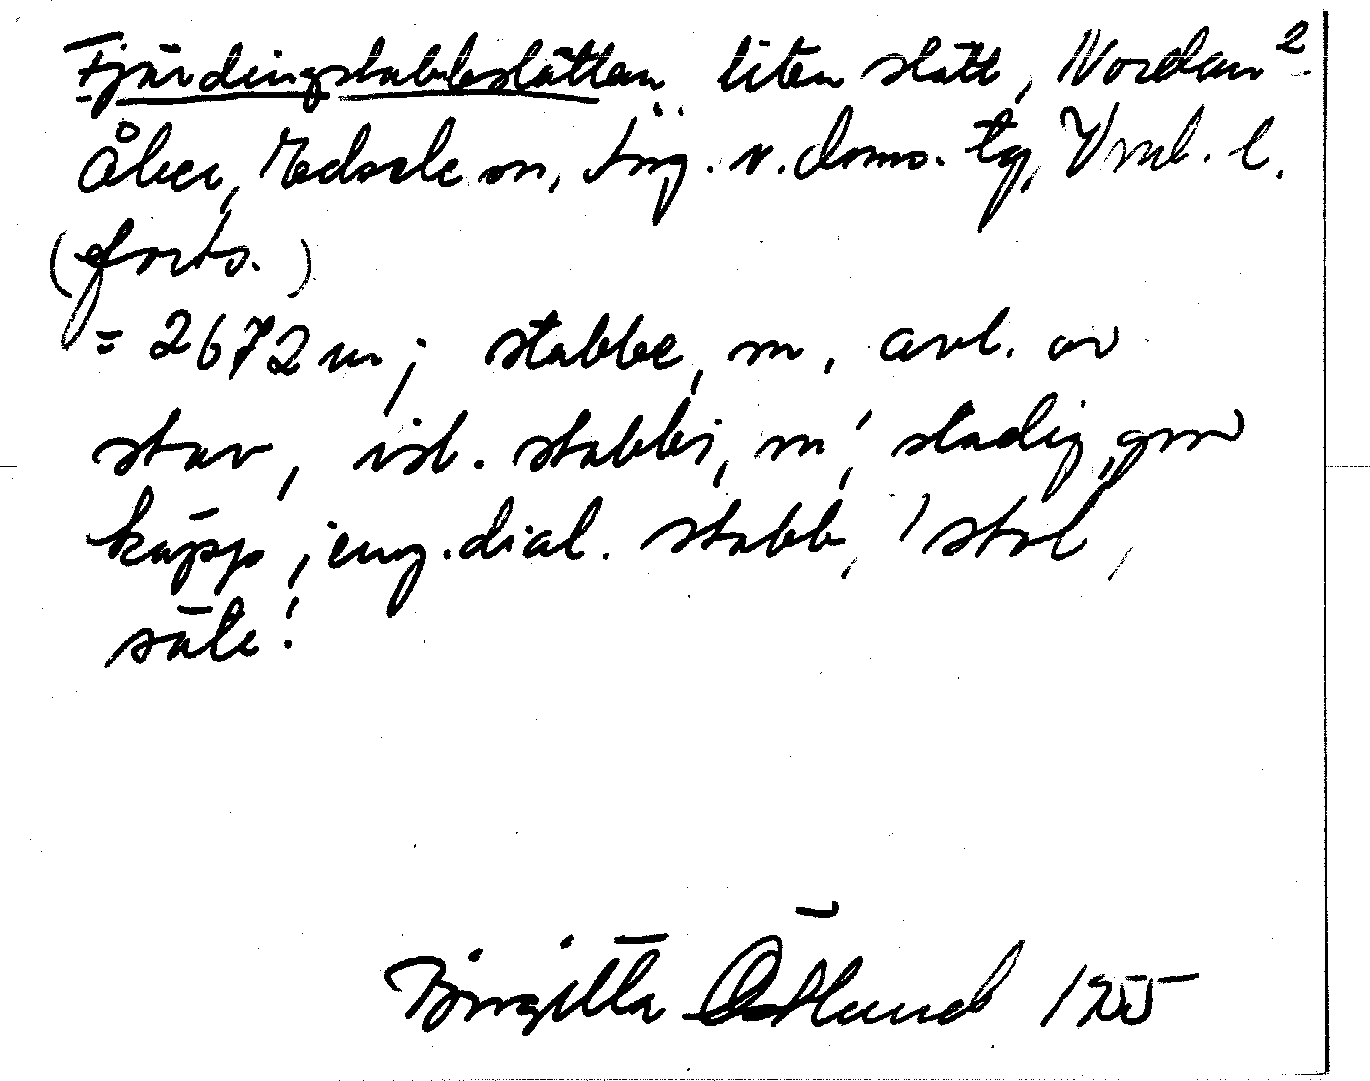 Fjärdingstabbslätten, liten slått, Nordan² -
Åker, Edsele sn, Ång. v. doms. tg, Vnl. l.
(forts.)
= 2672 m; stabbe, m, avl. av
stav, isl. stabbi, m, 'stadig, grov
käpp'; eng. dial. stabb, 'stol,
säte'.
Birgitta Östlund 1955